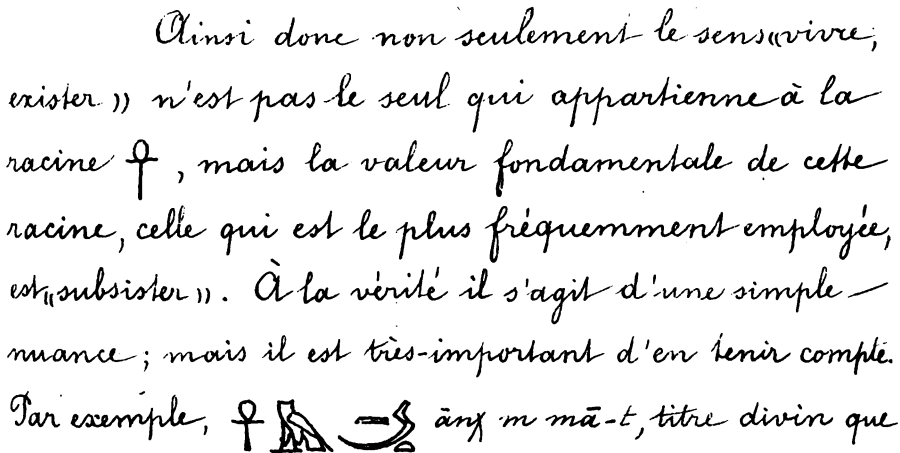 Ainsi donc non seulement le sens «vivre,
exister» n'est pas le seul qui appartienne à la
racine 𓋹, mais la valeur fondamentale de cette
racine, celle qui est le plus fréquemment employée,
est «subsister». À la vérité il s'agit d'une simple
nuance; mais il est très-important d'en tenir compte.
Par exemple, 𓋹𓅓 ānχ m mā-t, titre divin que